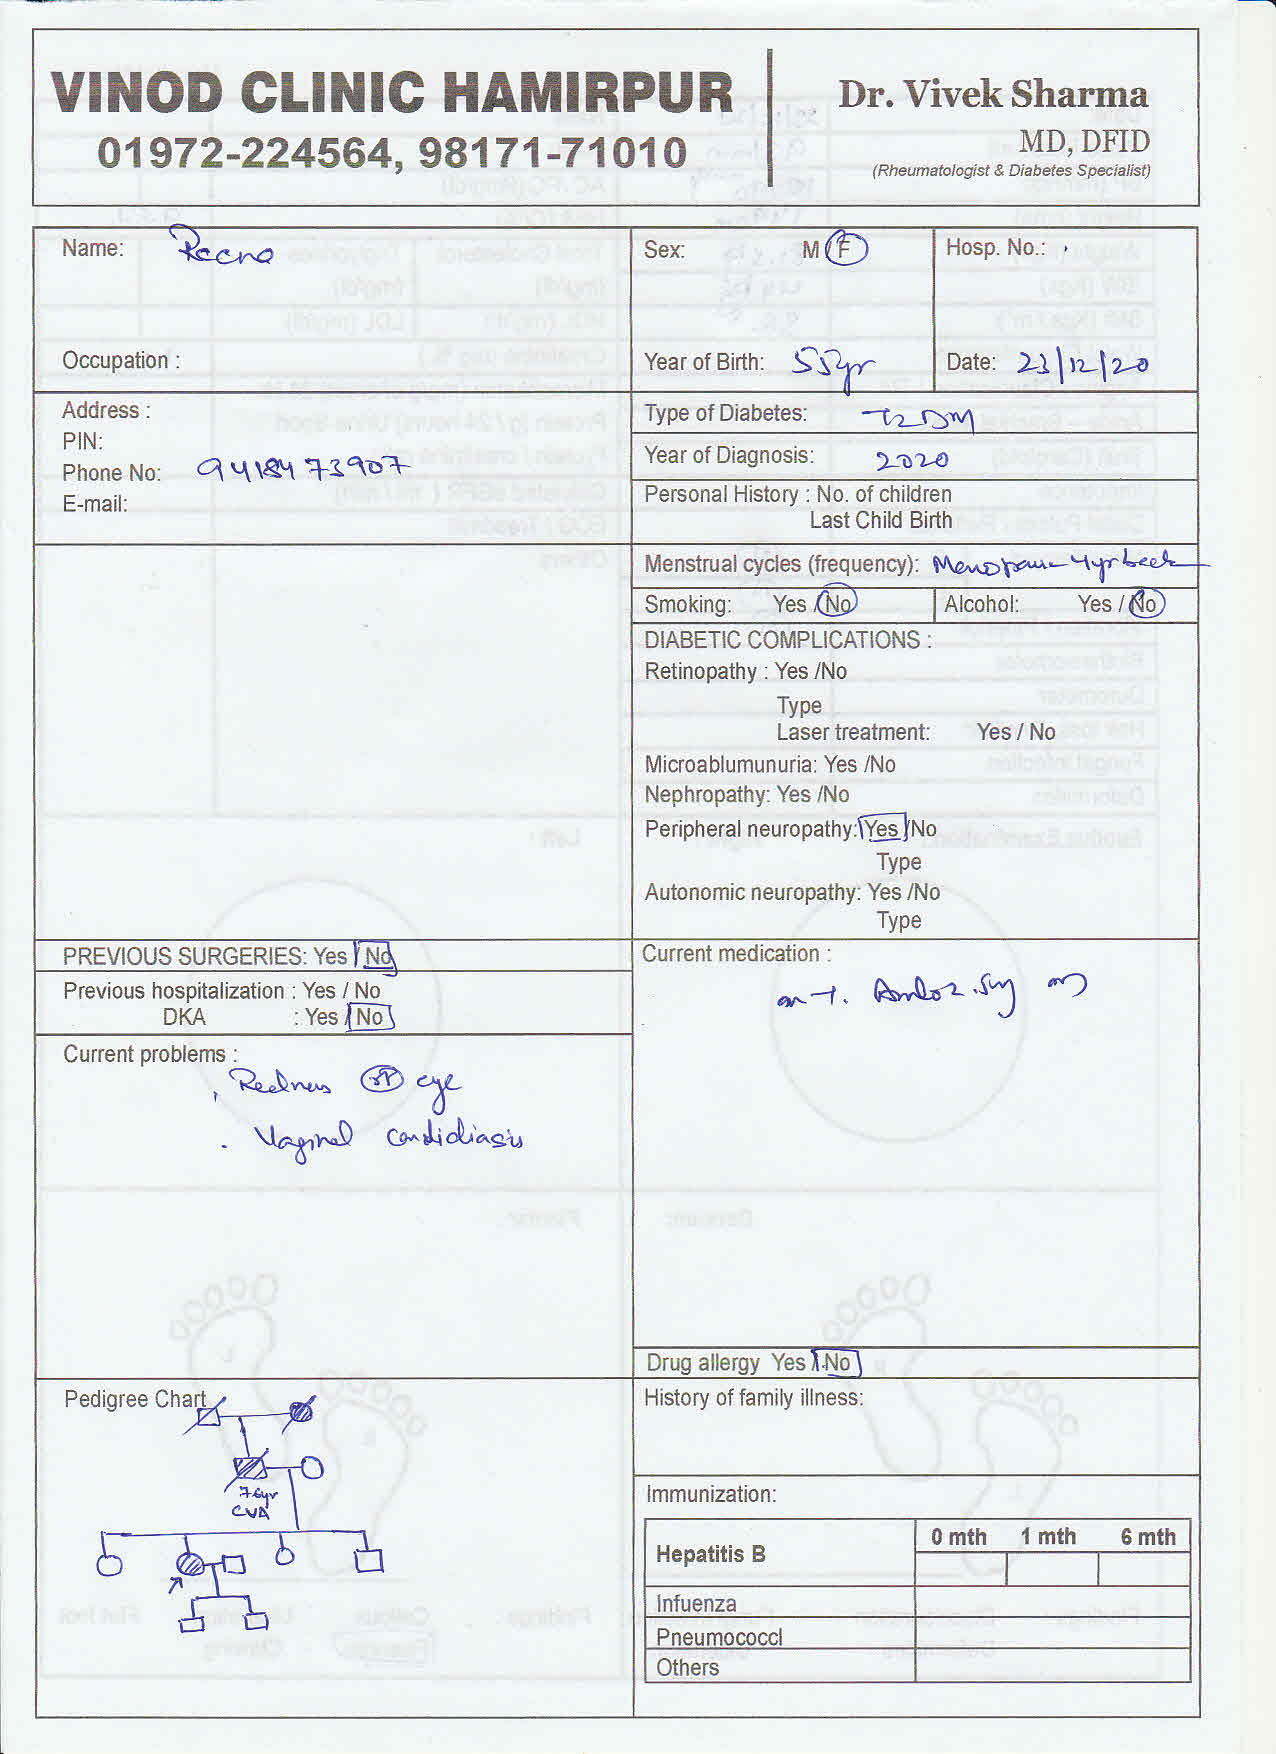 VINOD CLINIC HAMIRPUR
01972-224564, 98171-71010
Dr. Vivek Sharma
MD, DFID
(Rheumatologist & Diabetes Specialist)
Name: Reena
Sex: M F
Hosp. No.:
Occupation :
Year of Birth: 55yr
Date: 23/12/20
Address :
PIN:
Phone No: 9418473907
E-mail:
Type of Diabetes: T2DM
Year of Diagnosis: 2020
Personal History : No. of children
Last Child Birth
Menstrual cycles (frequency): Menopause 4yr back
Smoking: Yes / No
Alcohol: Yes / No
DIABETIC COMPLICATIONS :
Retinopathy : Yes /No
Type
Laser treatment: Yes / No
Microablumunuria: Yes /No
Nephropathy: Yes /No
Peripheral neuropathy: Yes /No
Type
Autonomic neuropathy: Yes /No
Type
PREVIOUS SURGERIES: Yes / No
Previous hospitalization : Yes / No
DKA : Yes / No
Current problems :
Redness eye
Vaginal candidiasis
Current medication :
on T. 5mg
Drug allergy Yes / No
Pedigree Chart
76yr
CVA
History of family illness:
Immunization:
Hepatitis B
0 mth 1 mth 6 mth
Infuenza
Pneumococcl
Others